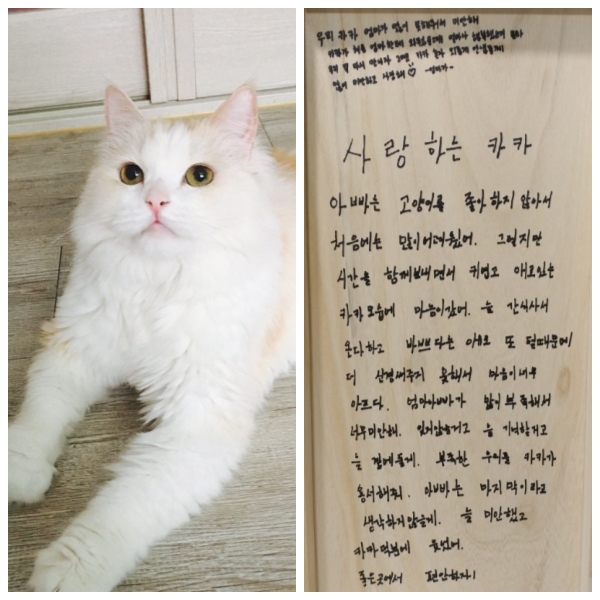 우리 카카 엄마가 많이 못해줘서 미안해
카카가 처음 엄마한테
많이 미안하고 사랑해♡ -엄마가-
사랑하는 카카
아빠는 고양이를 좋아하지 않아서
처음에는 많이 어려웠어. 그렇지만
시간을 함께 보내면서 귀엽고 애교있는
카카 모습에 마음이 갔어. 늘 간식사서
온다하고 바쁘다는 이유로 또 털때문에
더 신경써주지 못해서 마음이 너무
아프다. 엄마아빠가 많이 부족해서
너무 미안해. 잊지않을거고 늘 기억할거고
늘 곁에둘게. 부족한 우리를 카카가
용서해줘. 아빠는 마지막이라고
생각하지않을게. 늘 미안했고
카카덕분에
좋은곳에서 편안하자!